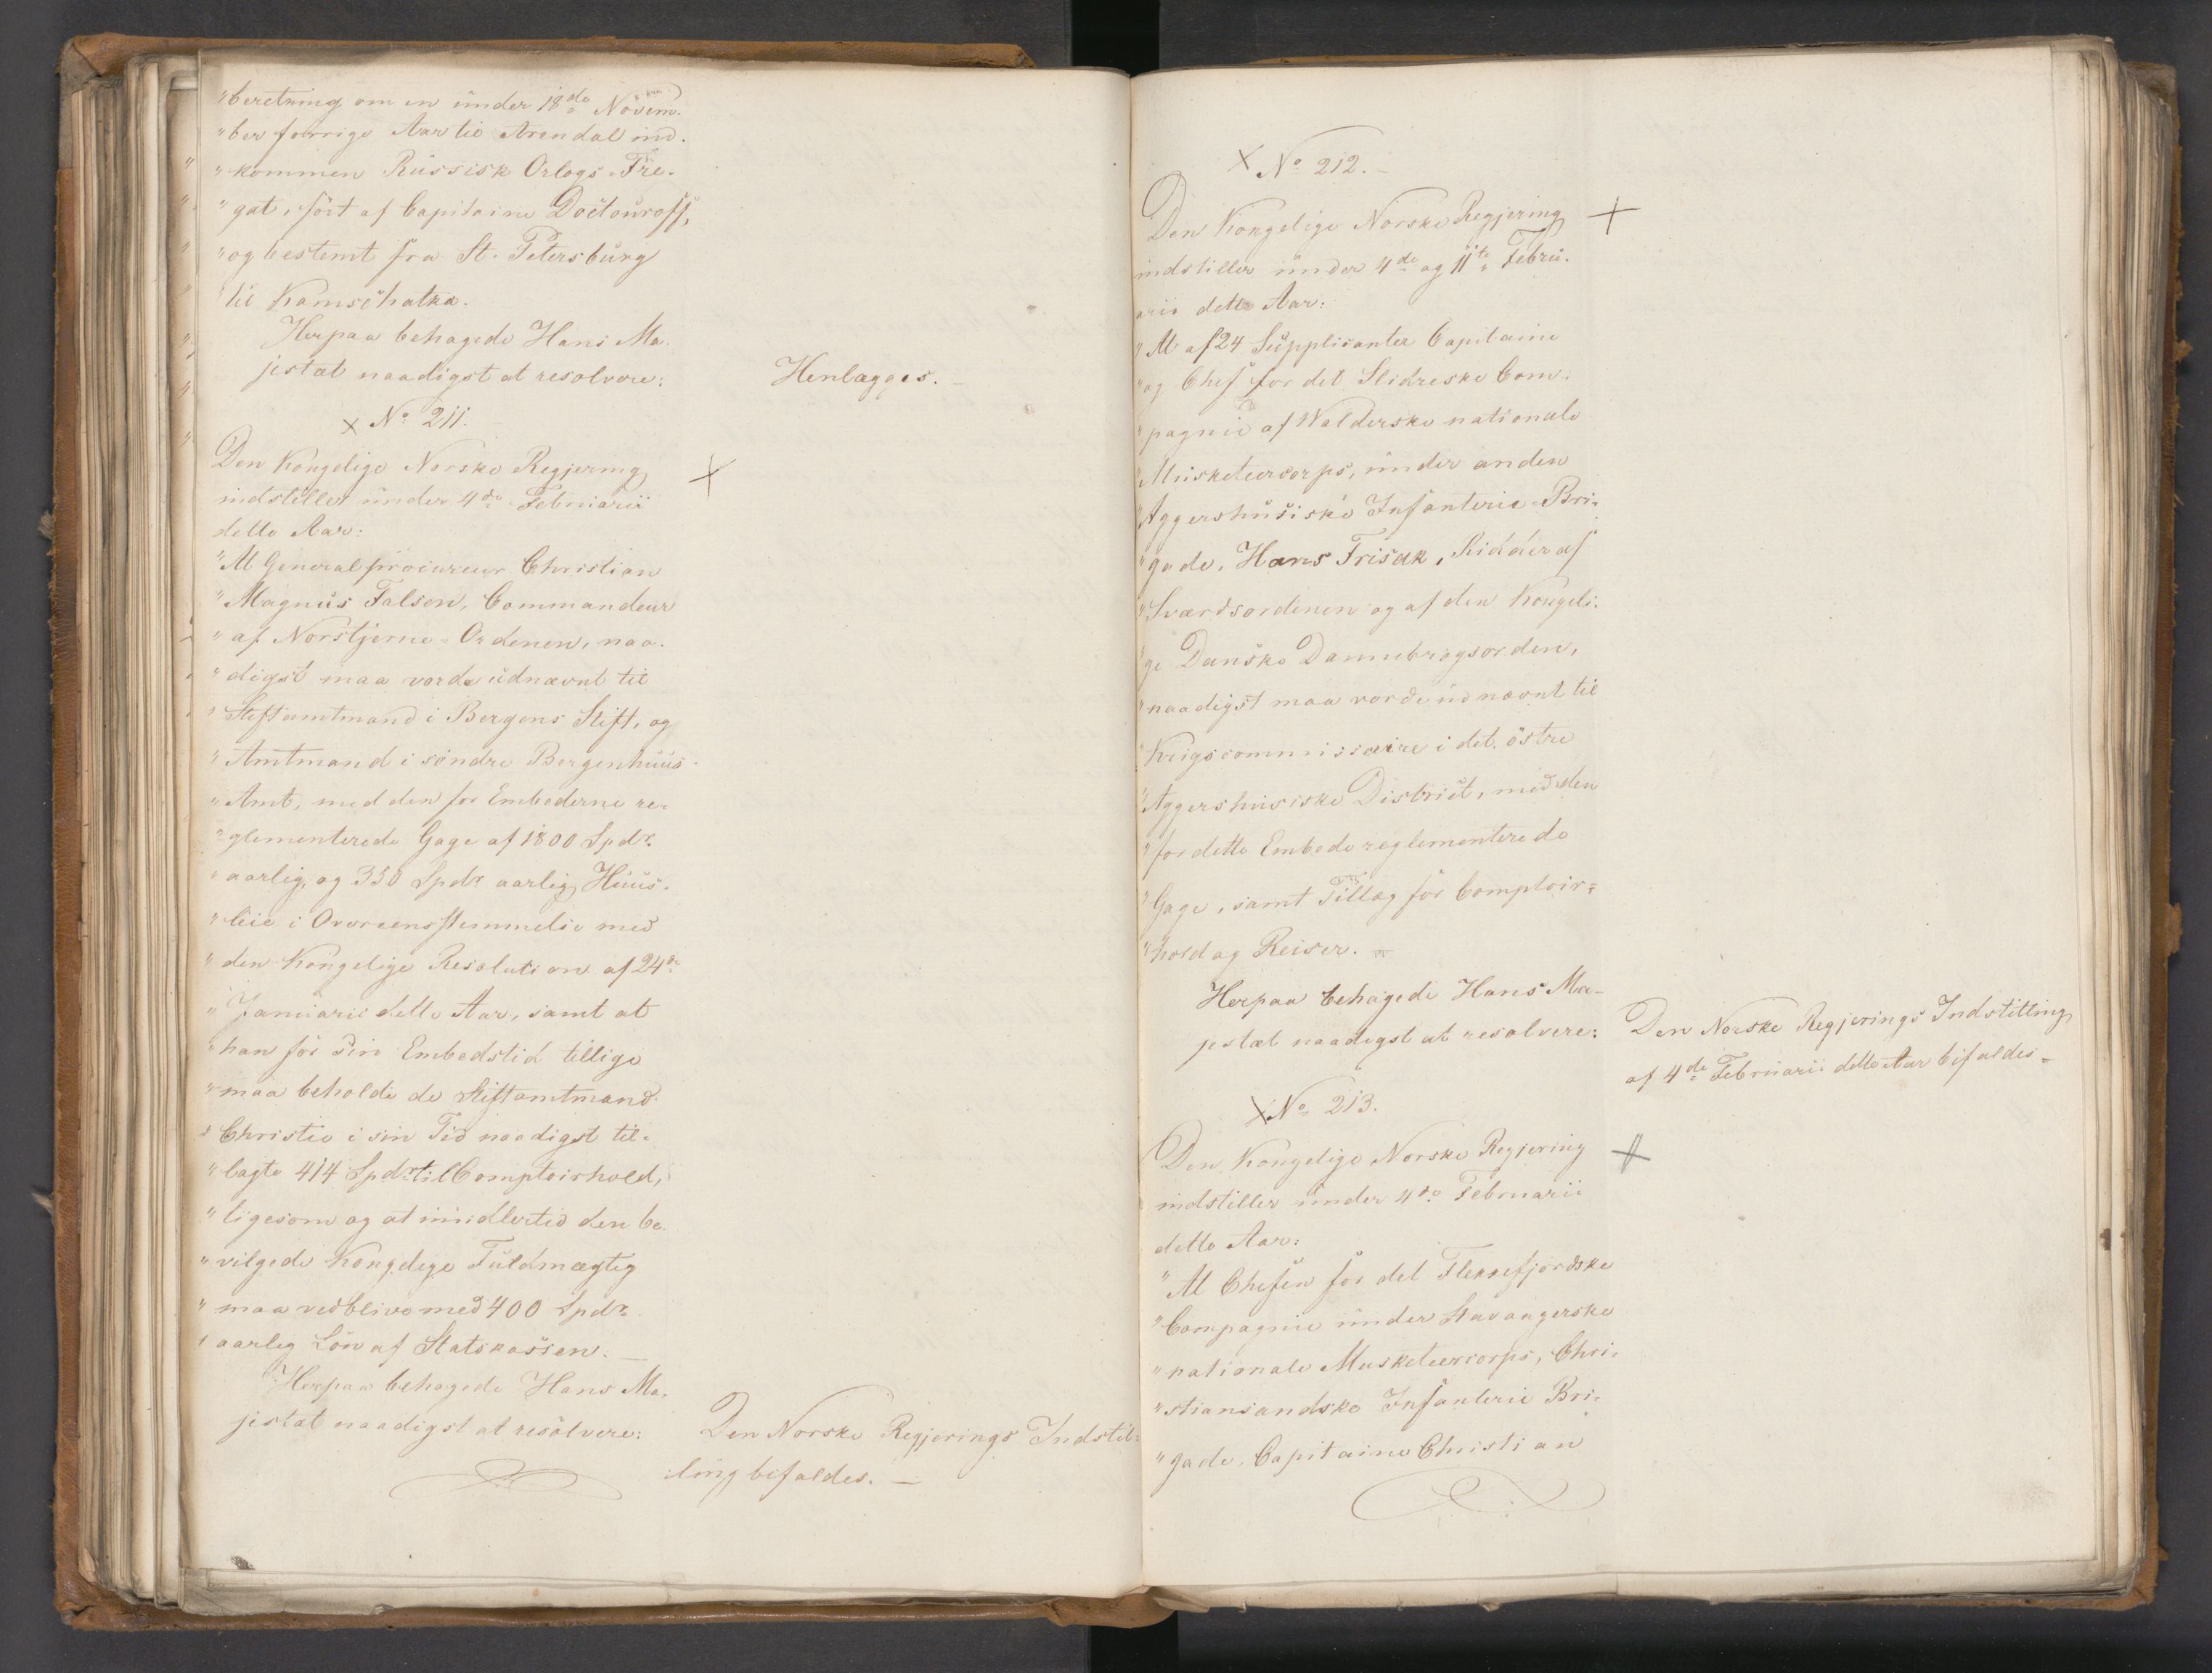 "beretning om en under 18de Novem-
"ber forrige Aar til Arendal ind-
"kommen Russisk Orlogs-Fre-
"gat, ført af Capitaine Doctouroff,
"og bestemt fra St. Petersburg
"til Kamschatka.
Herpaa behagede Hans Ma-
jestæt naadigst at resolvere:
Henlægges. —
× No 211.
Den Kongelige Norske Regjering
indstiller under 4de Februarii
dette Aar:
"At Generalprocureur Christian
"Magnus Falsen, Commandeur
"af Norstjerne-Ordenen, naa-
"digst maa vorde udnævnt til
"Stiftamtmand i Bergens Stift, og
"Amtmand i søndre Bergenhuus
"Amt, med den for Embederne re-
"glementerede Gage af 1800 Spdr
"aarlig, og 350 Spdr aarlig Huus-
"leie i Overeensstemmelse med
"den Kongelige Resolution af 24de
"Januarii dette Aar, samt at
"han for sin Embedstid tillige
"maa beholde de Stiftamtmand
"Christie i sin Tid naadigst til-
"lagte 414 Spdr til Comptoirhold,
"ligesom og at imidlertid den be-
"vilgede Kongelige Fuldmægtig
"maa vedblive med 400 Spdr
"aarlig Løn af Statskassen. —
Herpaa behagede Hans Ma-
jestæt naadigst at resolvere:
Den Norske Regjerings Indstil-
ling bifaldes. —
× No 212. —
Den Kongelige Norske Regjering
indstiller under 4de og 11te Febru-
arii dette Aar:
"At af 24 Supplicanter Capitaine
"og Chef for det Slidreske Com-
"pagnie af Walderske nationale
"Musketeercorps, under anden
"Aggershusiske Infanterie-Bri-
"gade, Hans Frisak, Ridder af
"Sværdsordenen og af den Kongeli-
"ge Danske Dannebrogsorden,
"naadigst maa vorde udnævnt til
"Krigscommissaire i det østre
"Aggershusiske District, med den
"for dette Embede reglementerede
"Gage, samt Tillæg for Comptoir-
"hold og Reiser. —
Herpaa behagede Hans Ma-
jestæt naadigst at resolvere:
Den Norske Regjerings Indstilling
af 4de Februarii dette Aar bifaldes —
× No 213.
Den Kongelige Norske Regjering
indstiller under 4de Februarii
dette Aar:
"At Chefen for det Flekkefjordske
"Compagnie under Stavangerske
"nationale Musketeercorps, Chri-
"stiansandske Infanterie Bri-
"gade, Capitaine Christian